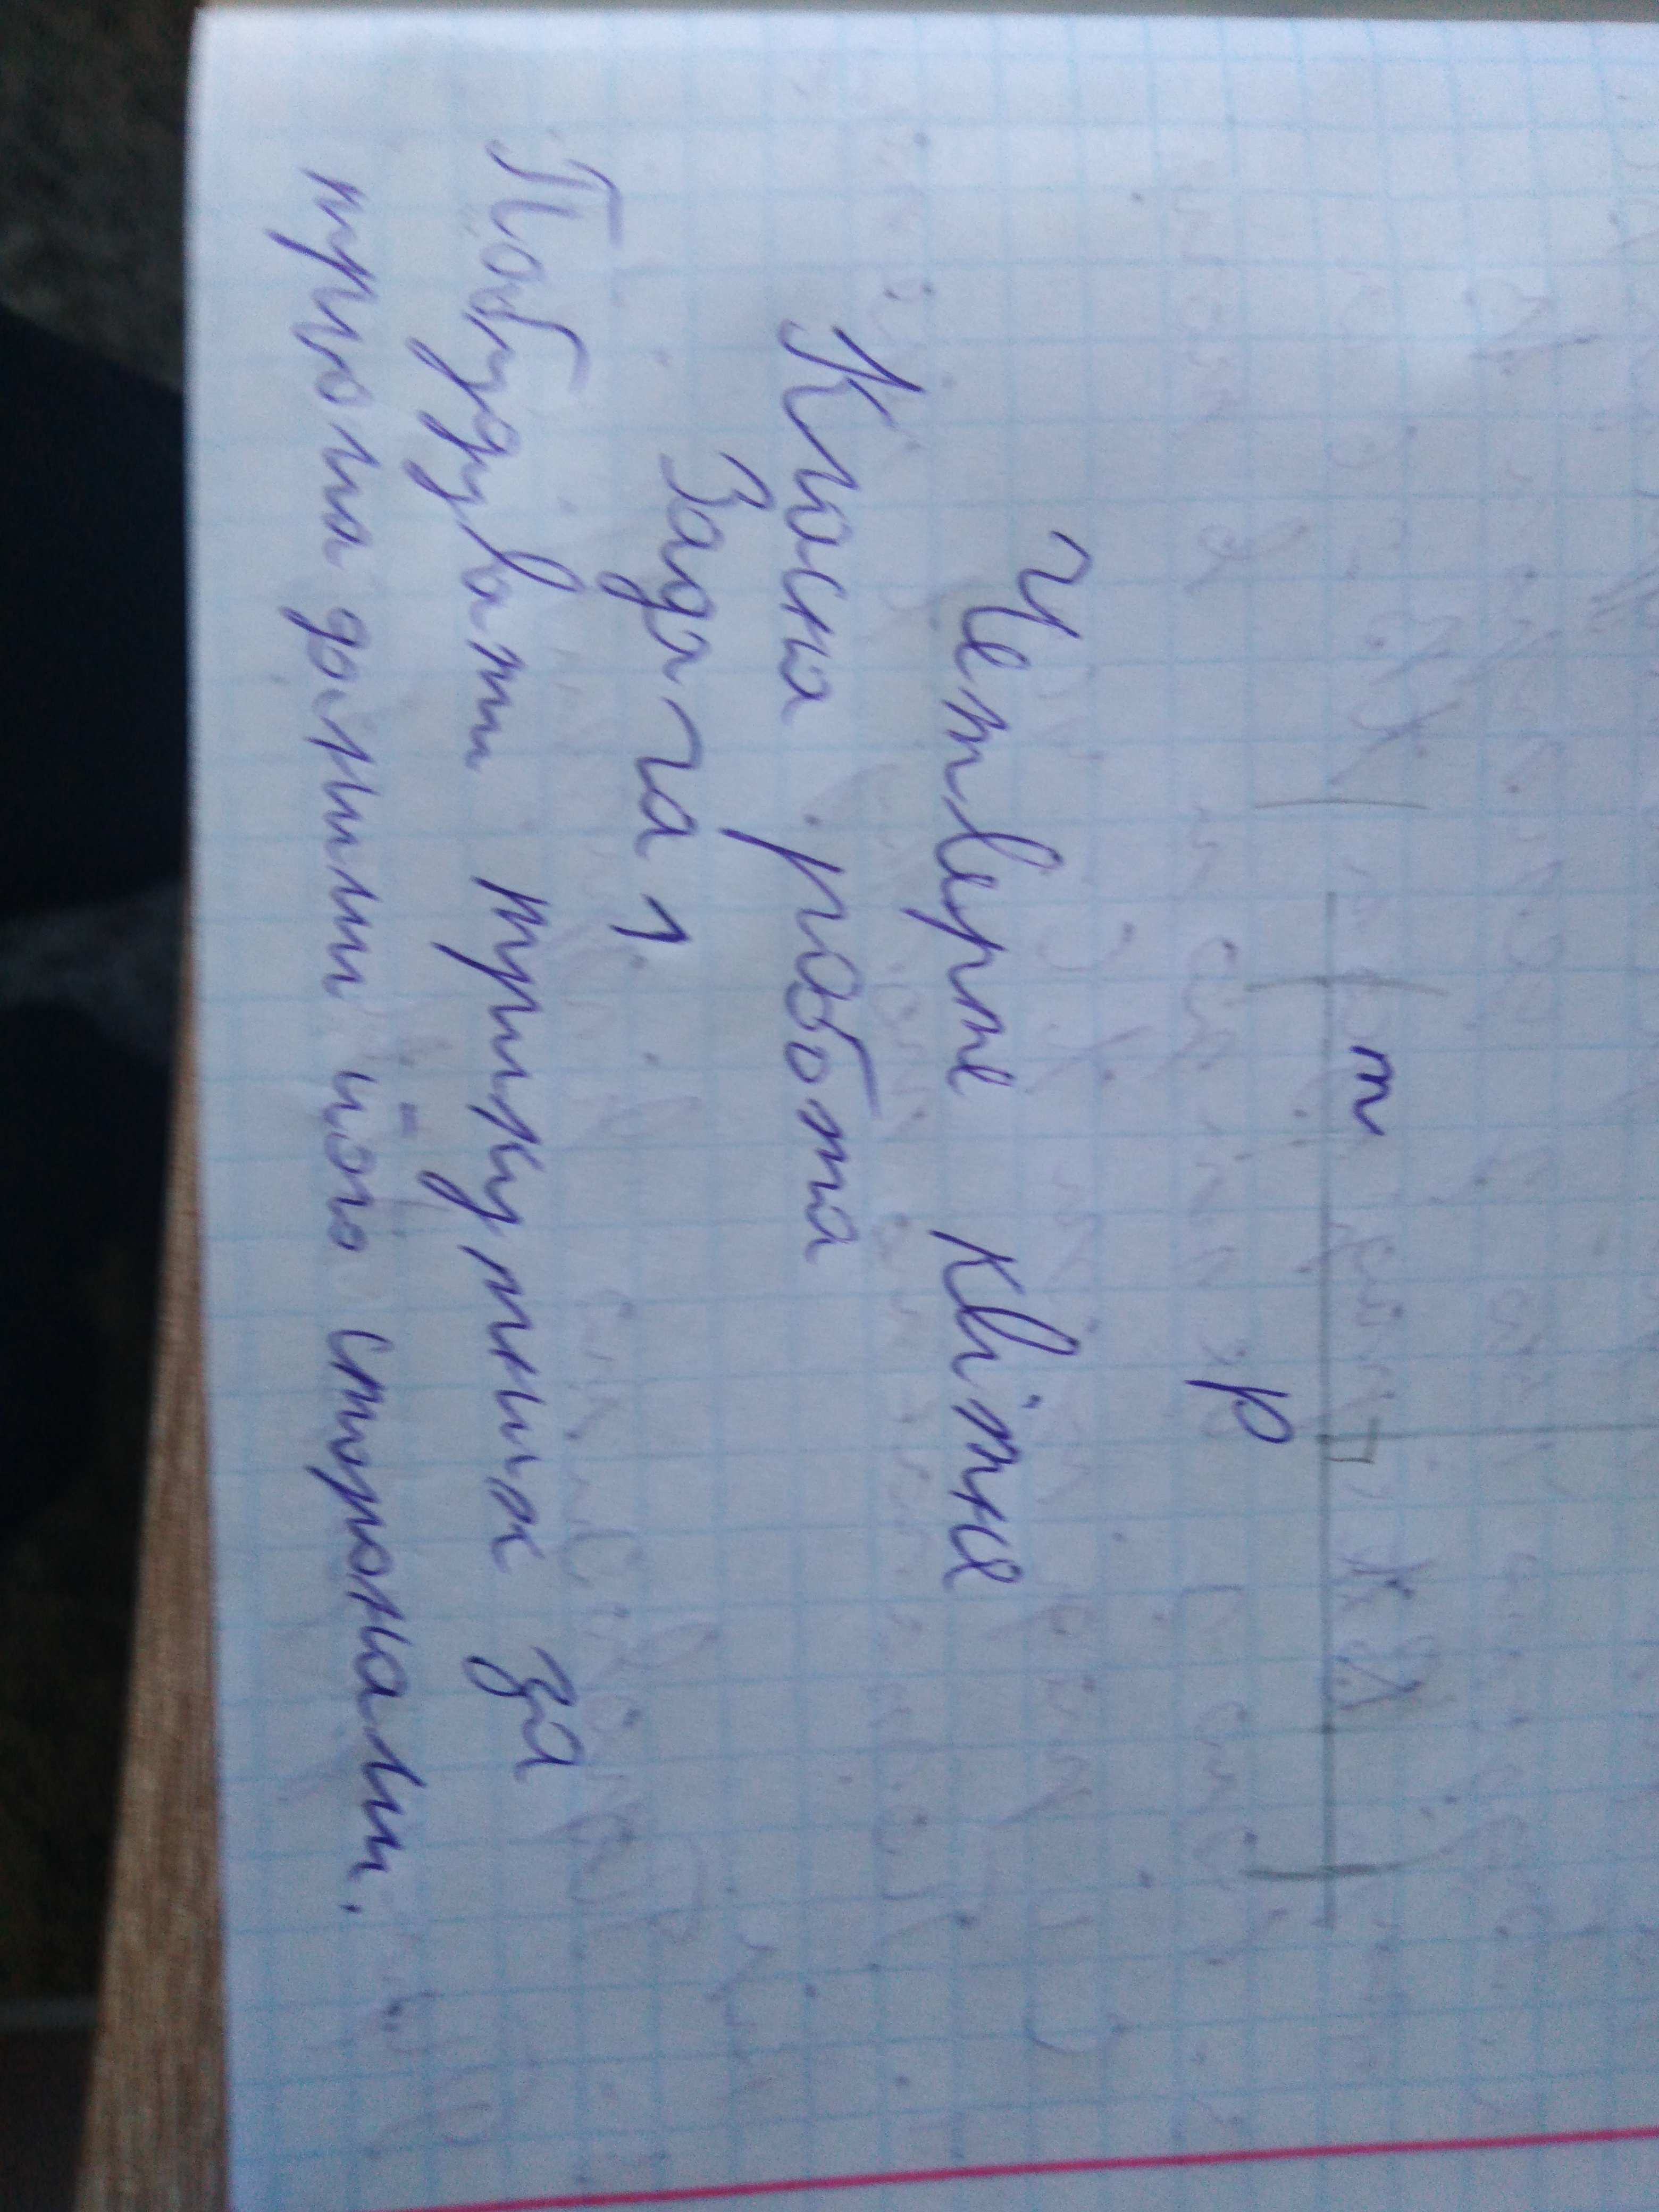 m
p
Четверте квітне
Класна робота
Задача 1.
Побудувати трикутник за
трьома даними його сторонами.